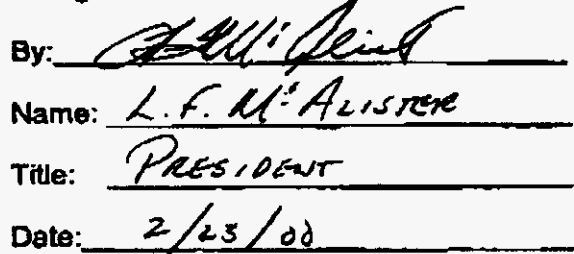 By:
Name: L.F. McALISTER
Title: PRESIDENT
Date: 2/23/00